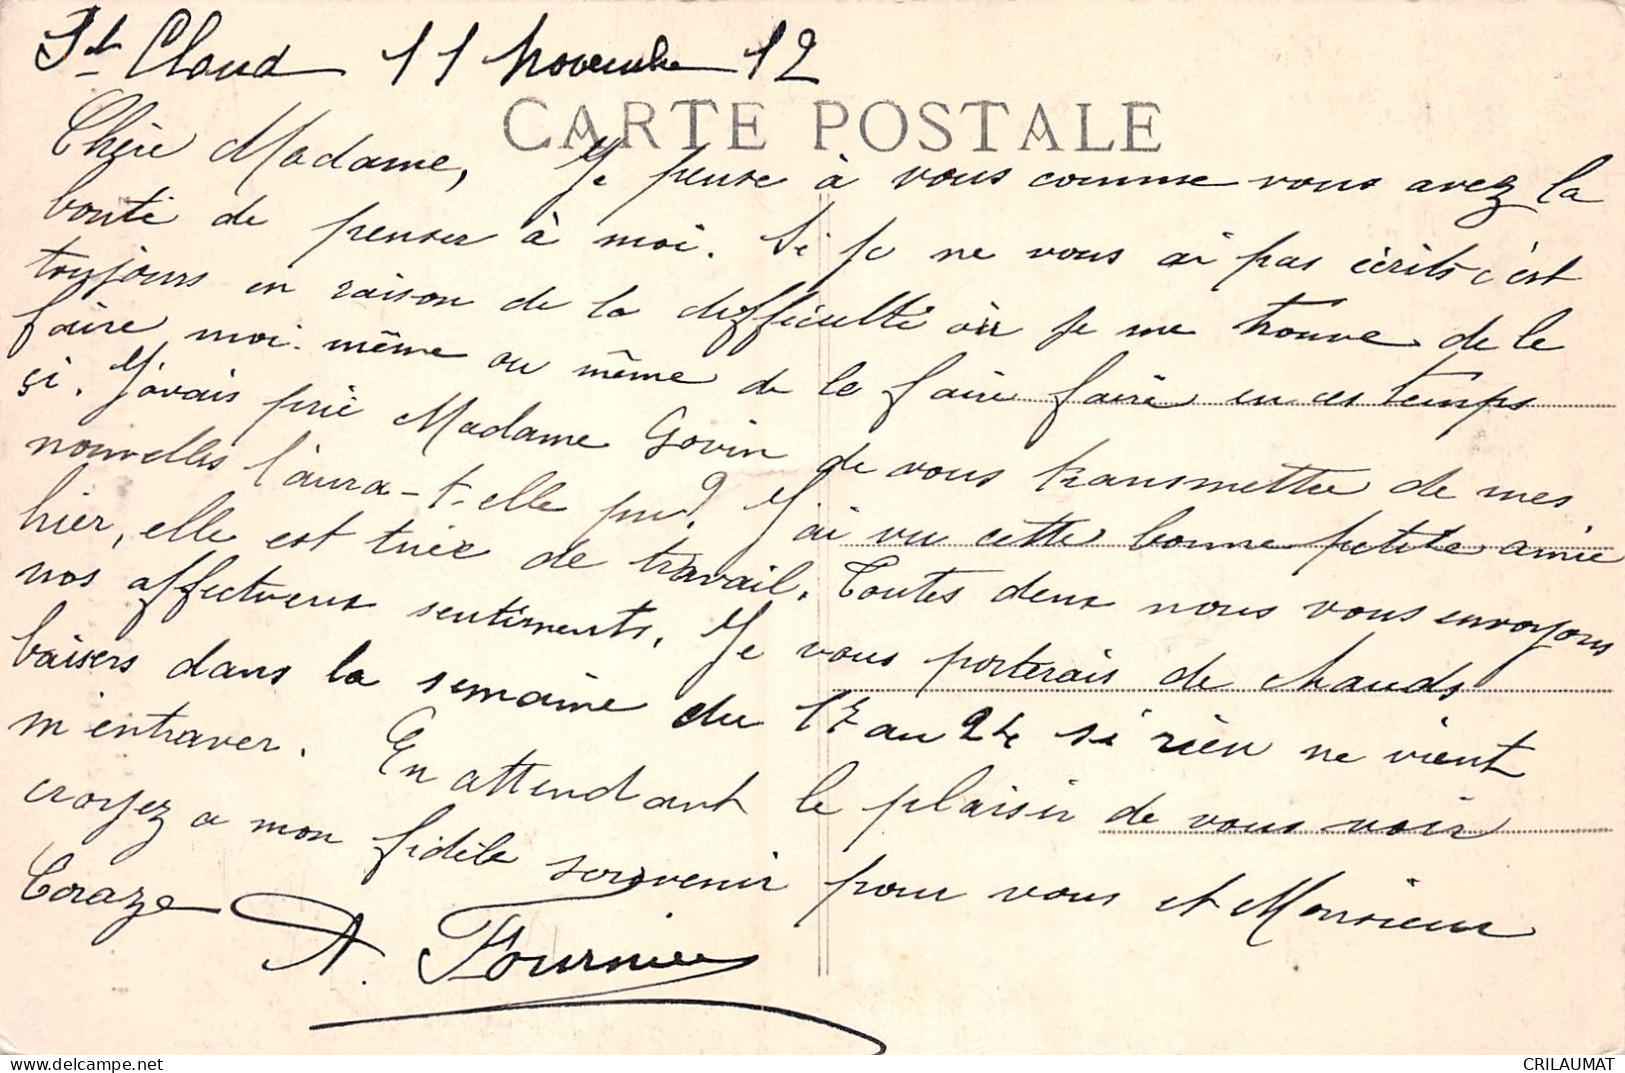 St Cloud 11 Novembre 12
CARTE POSTALE
Chère Madame, Je pense à vous comme vous avez la
bonté de penser à moi. Si je ne vous ai pas écrits c'est
toujours en raison de la difficulté où je me trouve de le
faire moi-même ou même de le faire faire en ces temps
çi. J'avais prié Madame Govin de vous transmettre de mes
nouvelles l'aura-t-elle pu? J'ai vu cette bonne petite amie
hier, elle est tuée de travail. Toutes deux nous vous envoyons
nos affectueux sentiments. Je vous porterais de chauds
baisers dans la semaine du 17 au 24 si rien ne vient
m'entraver. En attendant le plaisir de vous voir
croyez a mon fidèle souvenir pour vous et Monsieur
Coraze A. Fournier
delcampe.net
CRILAUMAT